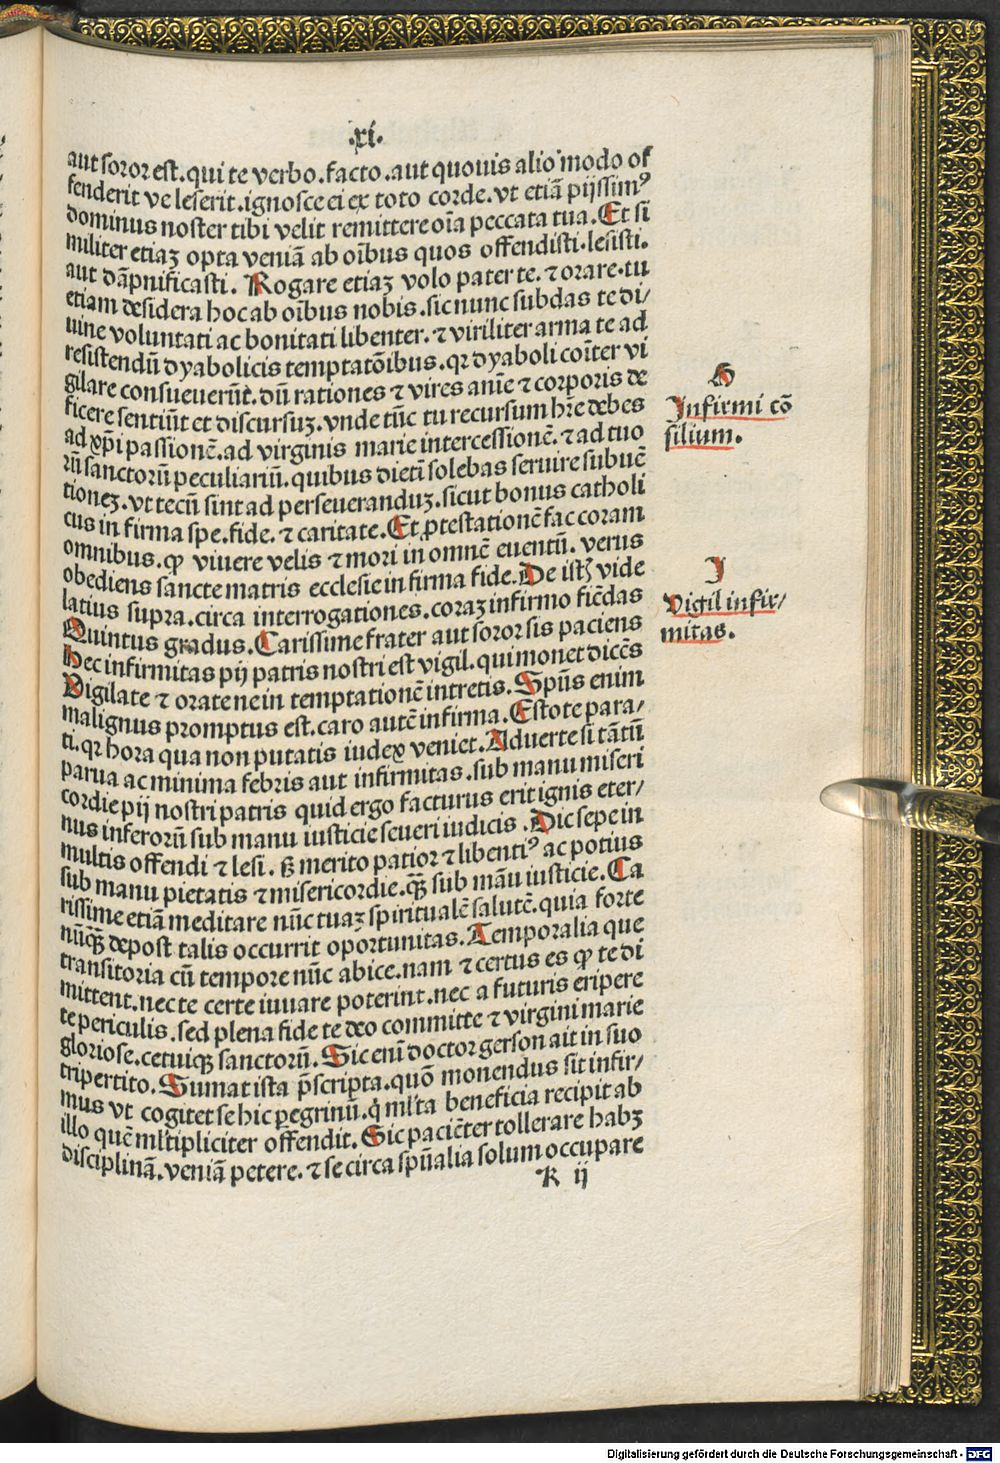 .xi.
aut soror est. qui te verbo. facto. aut quouis alio modo of
fenderit ve leserit. ignosce ei ex toto corde. vt etiā pijssimꝰ
dominus noster tibi velit remittere oīa peccata tua. Et si
militer etiaꝫ opta veniā ab oībus quos offendisti. lesisti.
aut dāpnificasti. Rogare etiaꝫ volo pater te. ⁊ orare. tu
etiam desidera hoc ab oībus nobis. sic nunc subdas te di/
uine voluntati ac bonitati libenter. ⁊ viriliter arma te ad
resistendū dyabolicis temptatōibus. qꝛ dyaboli coīter vi
gilare consueuerūt. dū rationes ⁊ vires anīe ⁊ corporis de
ficere sentiūt et discursuꝫ. vnde tūc tu recursum hr̄e debes
ad xp̄i passionē. ad virginis marie intercessionē. ⁊ ad tuo
rū sanctorū peculiariū. quibus dietī solebas seruire subuē
tioneꝫ. vt tecū sint ad perseueranduꝫ. sicut bonus catholi
cus in firma spe. fide. ⁊ caritate. Et ꝓtestationē fac coram
omnibus. ꝙ viuere velis ⁊ mori in omnē euentū. verus
obediens sancte matris ecclesie in firma fide. De istꝫ vide
latius supra. circa interrogationes. coraꝫ infirmo fiēdas
Quintus gradus. Carissime frater aut soror sis paciens
Hec infirmitas pij patris nostri est vigil. qui monet dicēs
Vigilate ⁊ orate ne in temptationē intretis. Spūs enim
malignus promptus est. caro autē infirma. Estote para/
ti. qꝛ hora qua non putatis iudex veniet. Aduerte si tātū
parua ac minima febris aut infirmitas. sub manu miseri
cordie pij nostri patris quid ergo facturus erit ignis eter/
nus inferorū sub manu iusticie seueri iudicis. Dic sepe in
multis offendi ⁊ lesi. ß merito patior ⁊ libentiꝰ ac potius
sub manu pietatis ⁊ misericordie. qꝫ̄ sub manū iusticie. Ca
rissime etiā meditare nūc tuaꝫ spiritualē salutē. quia forte
nūqꝫ̄ depost talis occurrit oportunitas. Temporalia que
transitoria cū tempore nūc abice. nam ⁊ certus es ꝙ te di
mittent. nec te certe iuuare poterint. nec a futuris eripere
te periculis. sed plena fide te deo committe ⁊ virgini marie
gloriose. cetuiqꝫ sanctorū. Sic enī doctor gerson ait in suo
tripertito. Sumat ista p̄scripta. quō monendus sit infir/
mus vt cogitet se hic peregrinū. q̇ ml̄ta beneficia recipit ab
illo quē ml̄tipliciter offendit. Sic paciēter tollerare habꝫ
disciplinā. veniā petere. ⁊ se circa spūalia solum occupare
K ij
H
Infirmi cō
silium.
I
Vigil infir/
mitas.
Digitalisierung gefördert durch die Deutsche Forschungsgemeinschaft - DFG